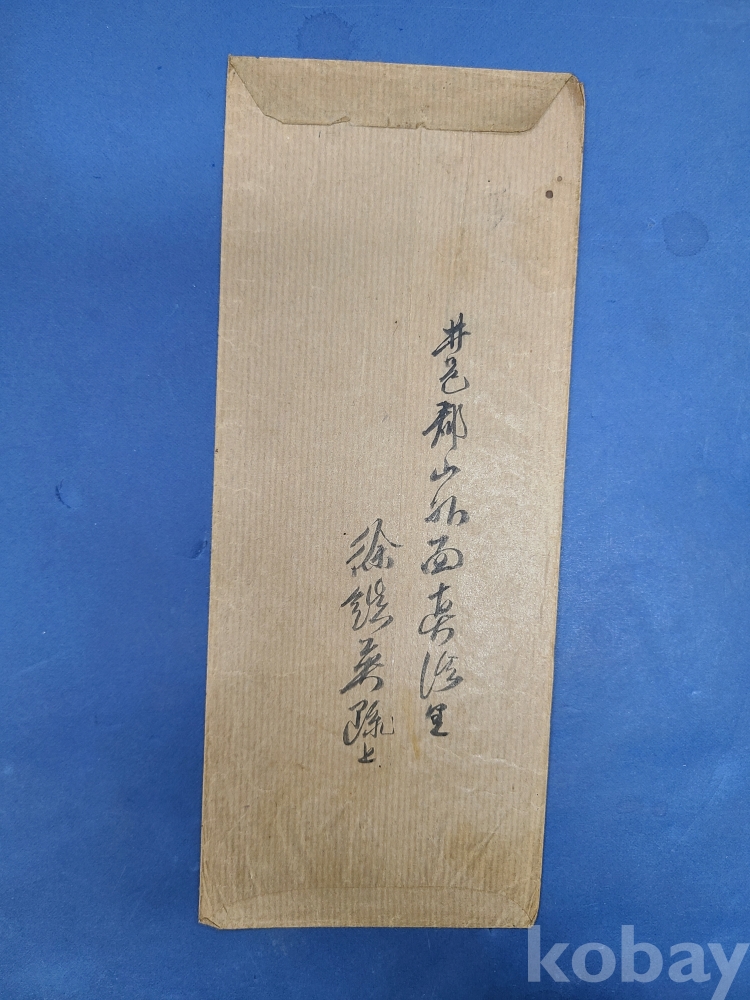 井邑郡山外面真里
徐鎮英疏上
kobay